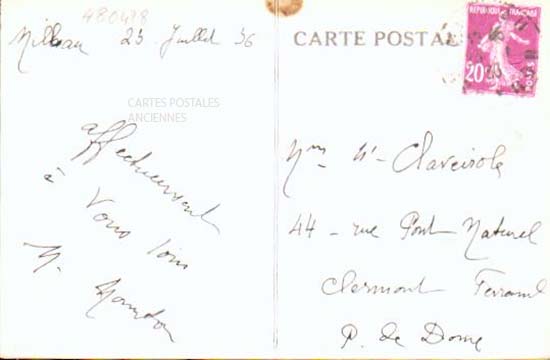 480418
Millau 25 Juillet 36
CARTE POSTALE
REPUBLIQUE FRANÇAISE
20
CARTES POSTALES
ANCIENNES
affectueusement
à vous tous
Mme
44 - rue Pont Naturel
Clermont Ferrand
P. de Dome